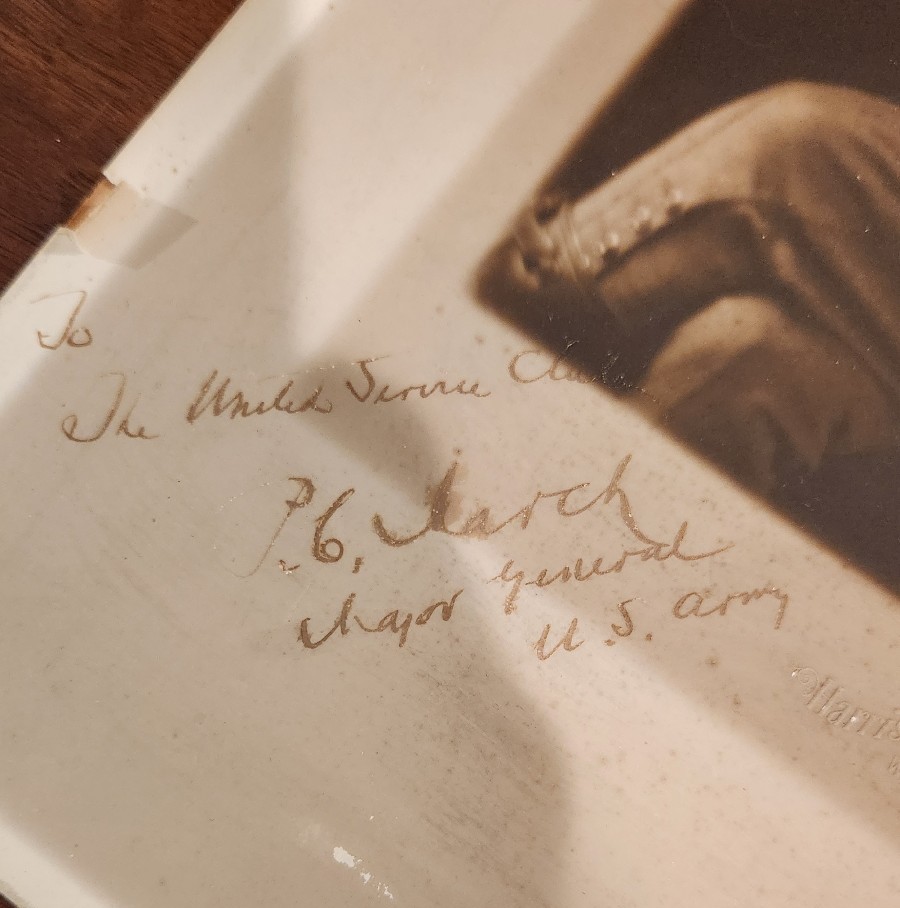 To
The United Service Club
P. C. March
Major General
U.S. Army
©Harris